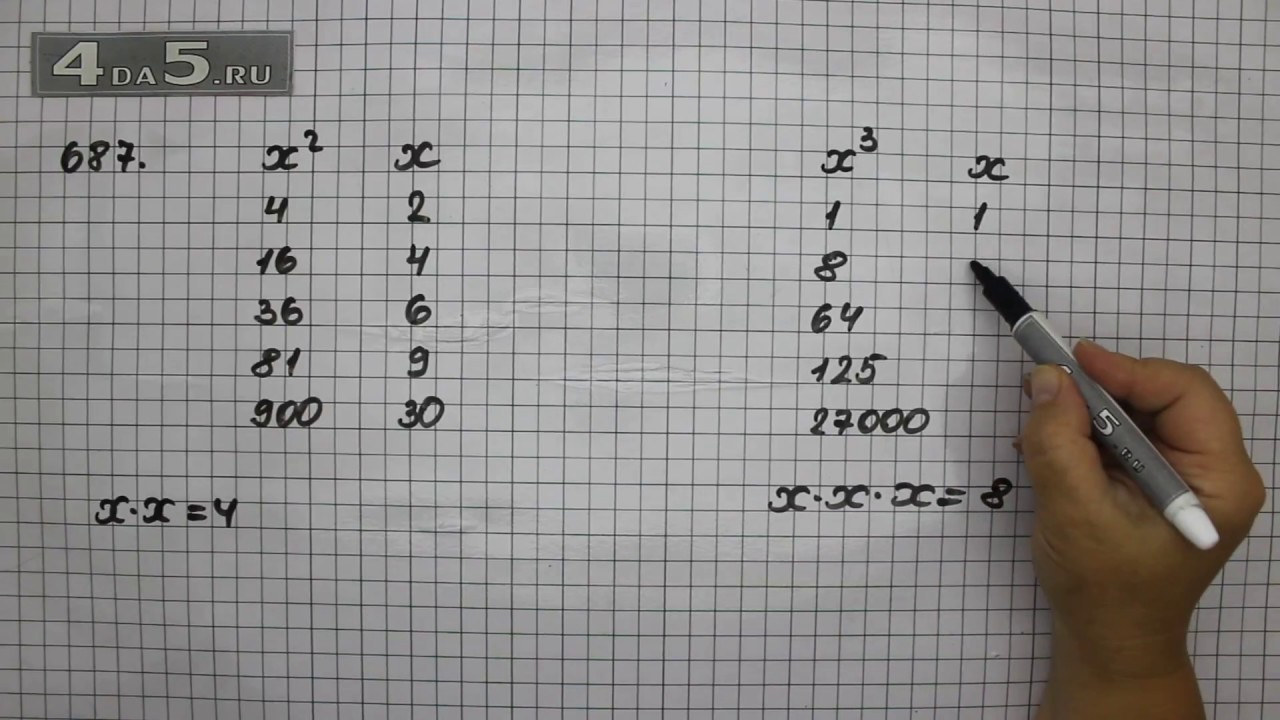 4DA5.RU
687. x² x x³ x
4 2 1 1
16 4 8
36 6 64
81 9 125
900 30 27000
x·x=4 x·x·x=8
5.RU